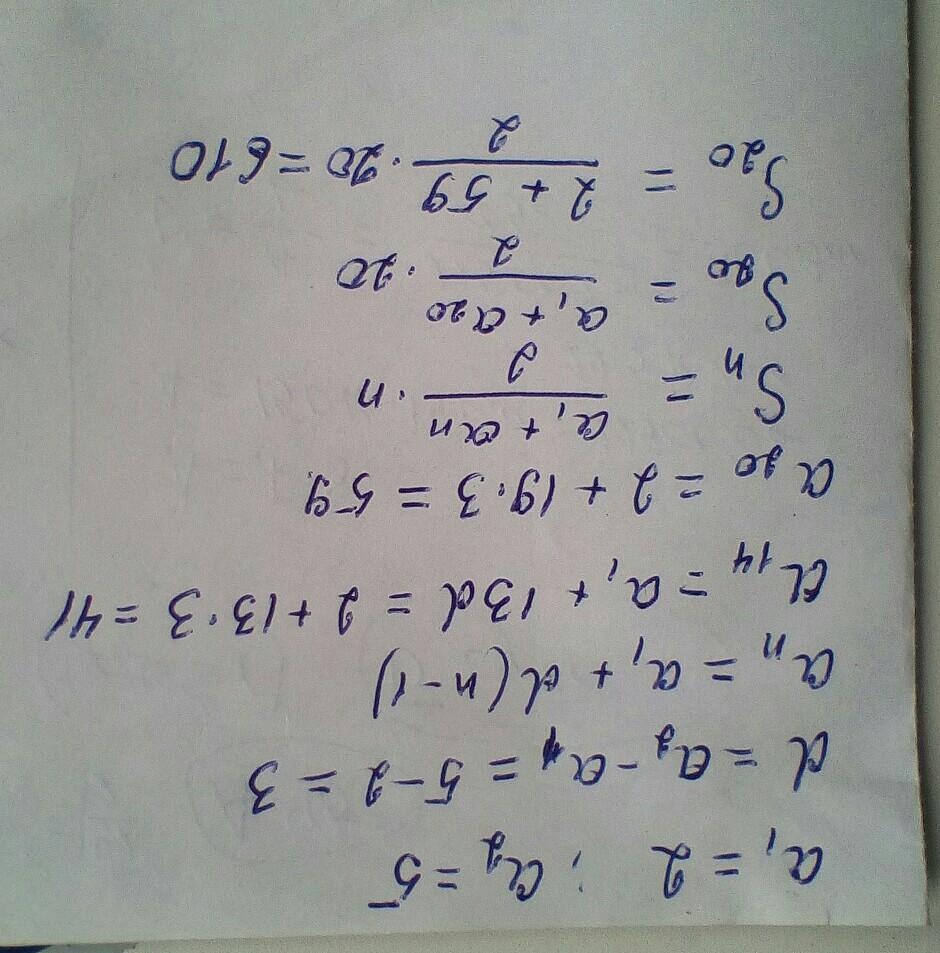 a₁ = 2 ; a₂ = 5
d = a₂ - a₁ = 5 - 2 = 3
aₙ = a₁ + d(n-1)
a₁₄ = a₁ + 13d = 2 + 13·3 = 41
a₂₀ = 2 + 19·3 = 59
Sₙ = (a₁ + aₙ)/2 · n
S₂₀ = (a₁ + a₂₀)/2 · 20
S₂₀ = (2 + 59)/2 · 20 = 610